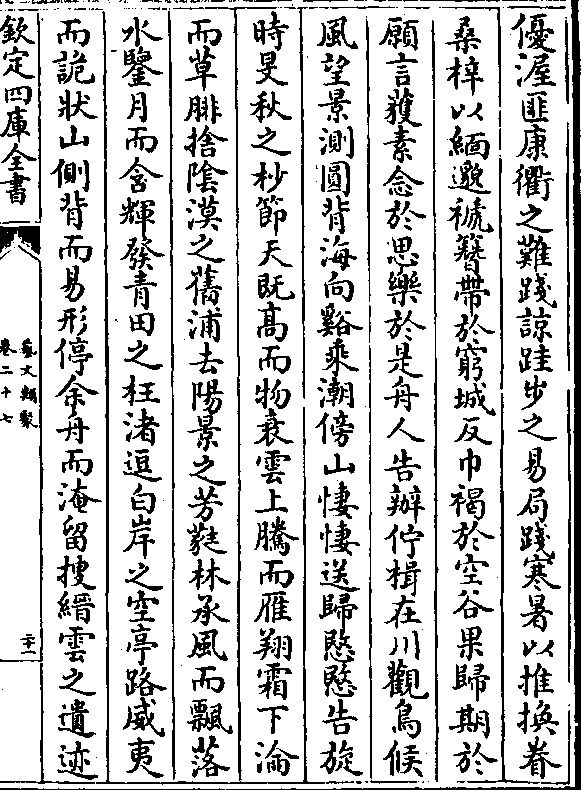 優渥匪康衢之難踐諒跬步之易局踐寒暑以推換眷
桑梓以緬邈褫簪帶於窮城反巾褐於空谷果歸期於
願言獲素念於思樂於是舟人告辦佇楫在川觀鳥候
風望景測圓背海向谿乘潮傍山悽悽送歸愍愍告旋
時旻秋之杪節天既高而物衰雲上騰而雁翔霜下淪
而草腓捨陰漠之舊浦去陽景之芳蕤林承風而飄落
水鑒月而含輝發青田之枉渚逗白岸之空亭路威夷
而詭狀山側背而易形停余舟而淹留搜縉雲之遺迹
欽定四庫全書
藝文類聚
卷二十七
二十一